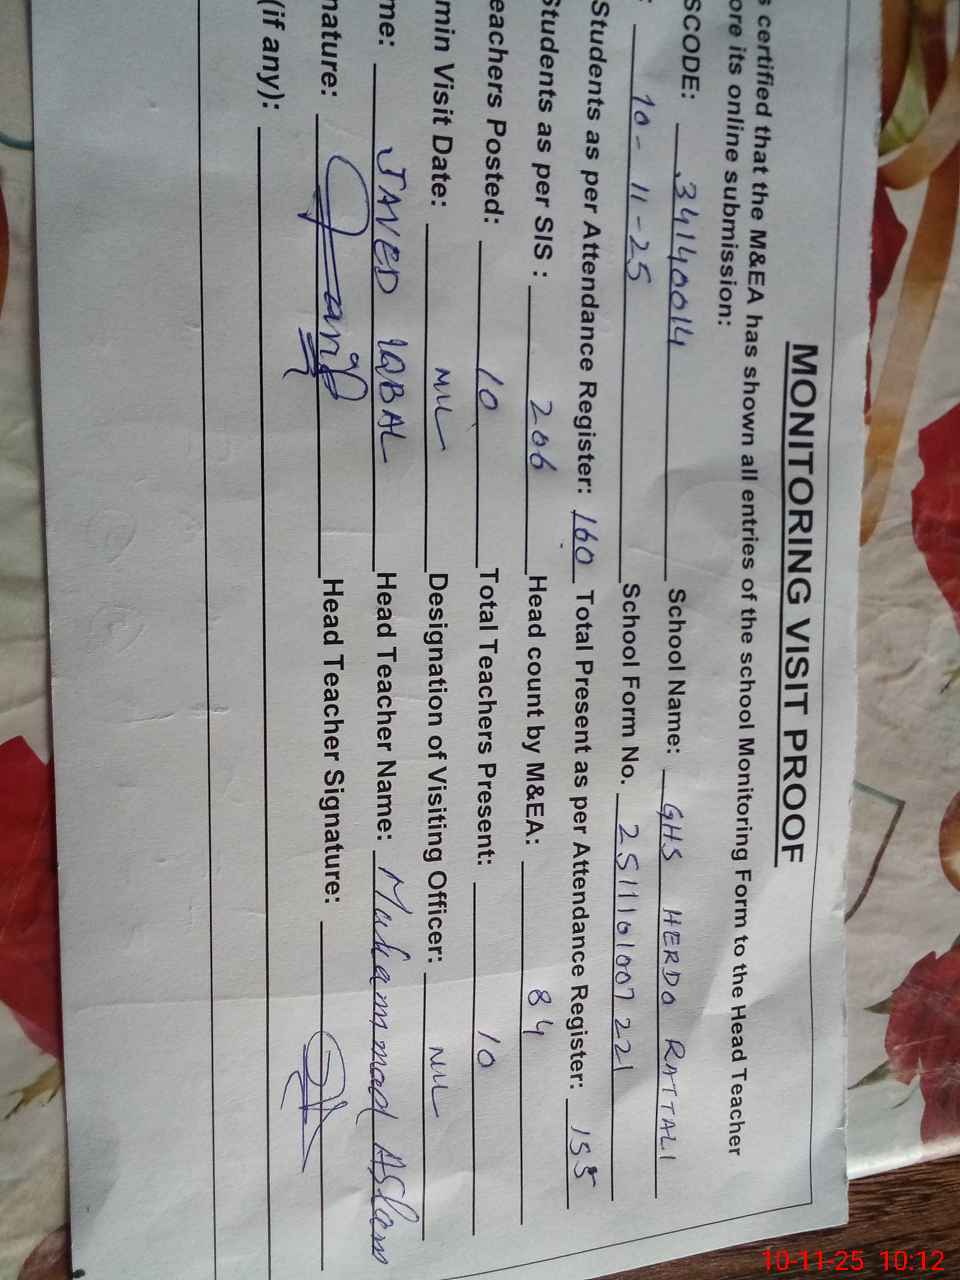 MONITORING VISIT PROOF
s certified that the M&EA has shown all entries of the school Monitoring Form to the Head Teacher
ore its online submission:
SCODE: 34140014 School Name: GHS HERDO RATTALI
: 10-11-25 School Form No. 2511161007221
Students as per Attendance Register: 160 Total Present as per Attendance Register: 155
Students as per SIS : 206 Head count by M&EA: 84
eachers Posted: 10 Total Teachers Present: 10
min Visit Date: NIL Designation of Visiting Officer: NIL
me: JAVED IQBAL Head Teacher Name: Muhammad Aslam
nature: Head Teacher Signature:
(if any):
10-11-25 10:12